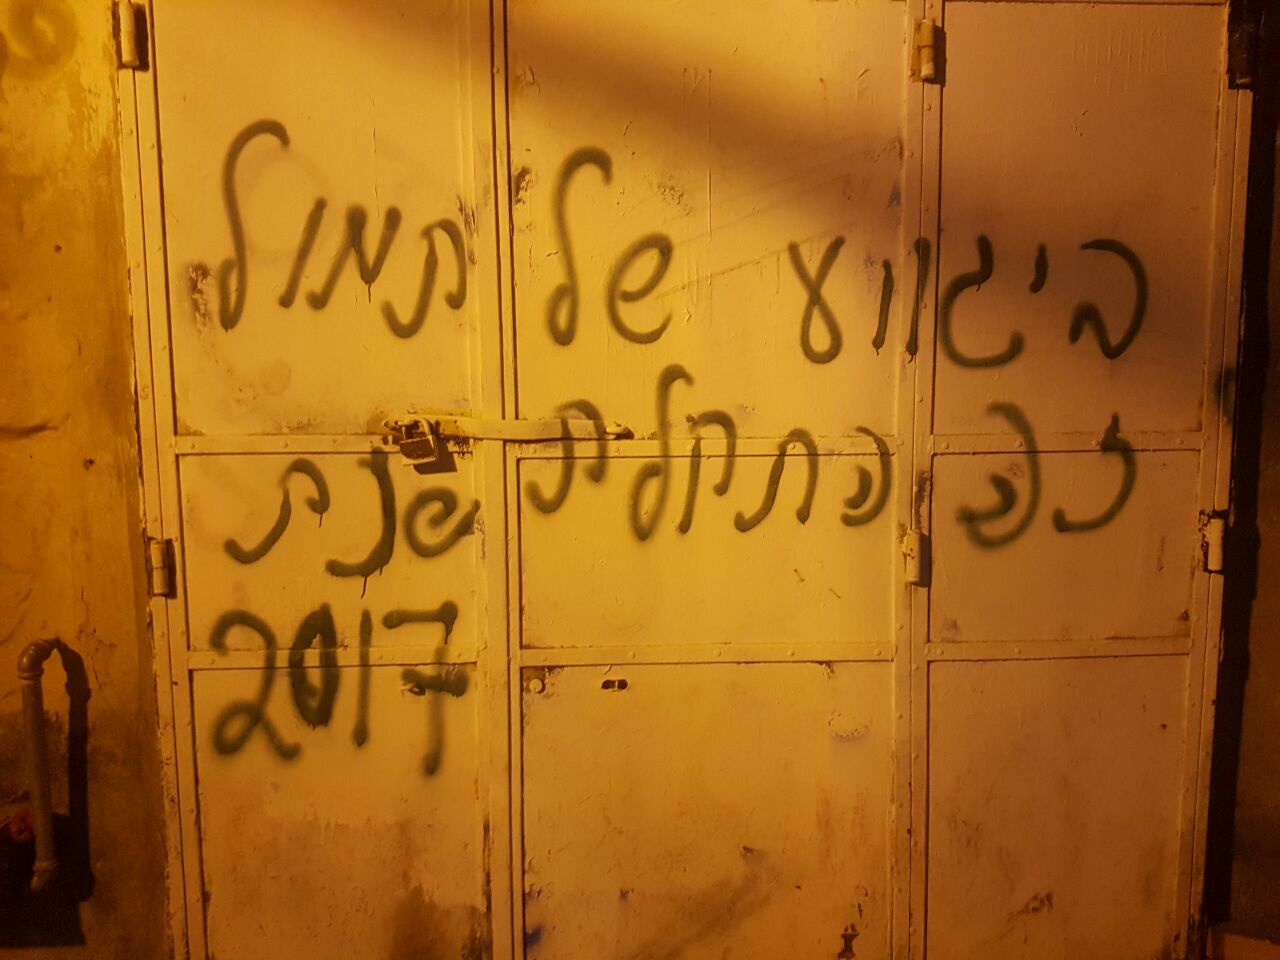 ביגווע של תמול
זה התחלת שנת
2017